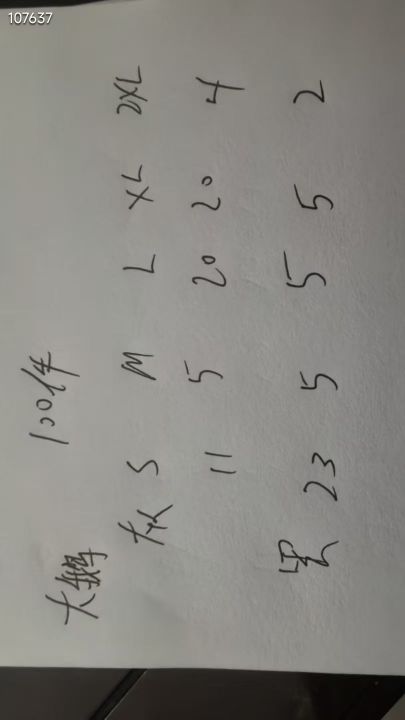 大鹅 100件
S M L XL 2XL
11 5 20 20 4
23 5 5 5 2